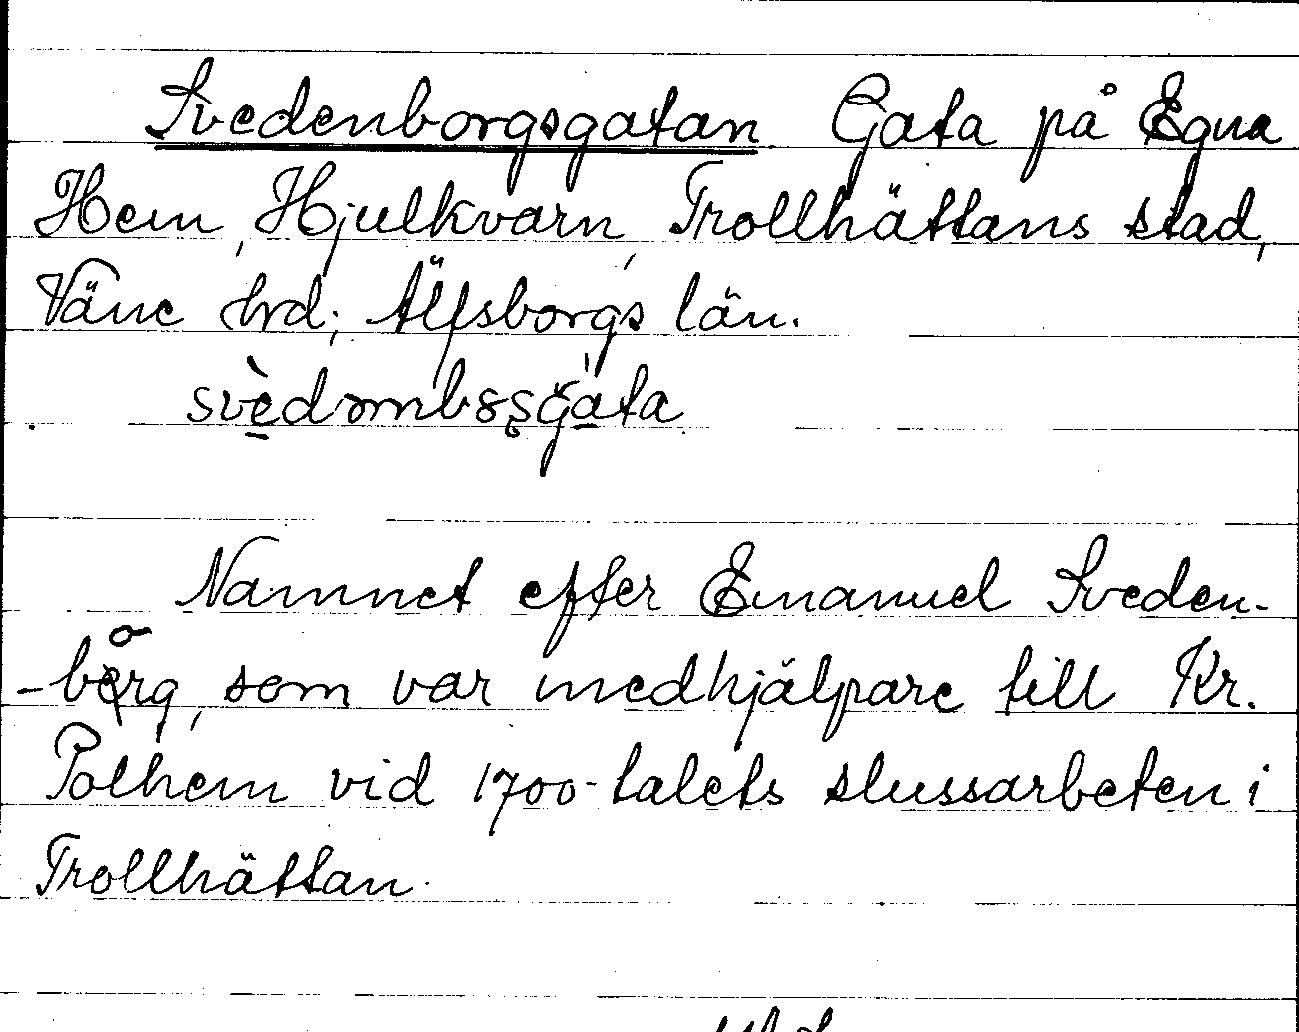 Svedenborgsgatan Gata på Egna
Hem, Hjulkvarn, Trollhättans stad,
Väne hrd; Älfsborgs län.
Namnet efter Emanuel Sveden-
-borg, som var medhjälpare till Kr.
Polhem vid 1700-talets slussarbeten i
Trollhättan.